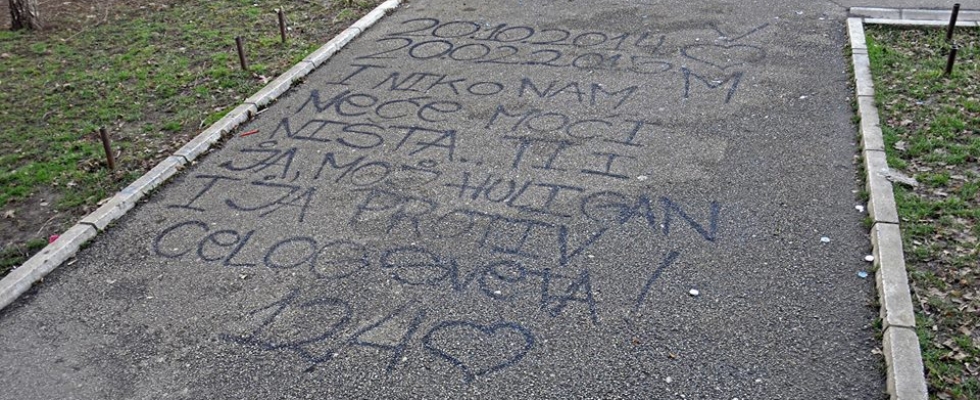 20102014 V
20022015 ♡
I NIKO NAM M
NEĆE MOĆI
NIŠTA.. TI I
JA, MOŠ HULIGAN
I JA PROTIV
CELOG SVETA!
♡